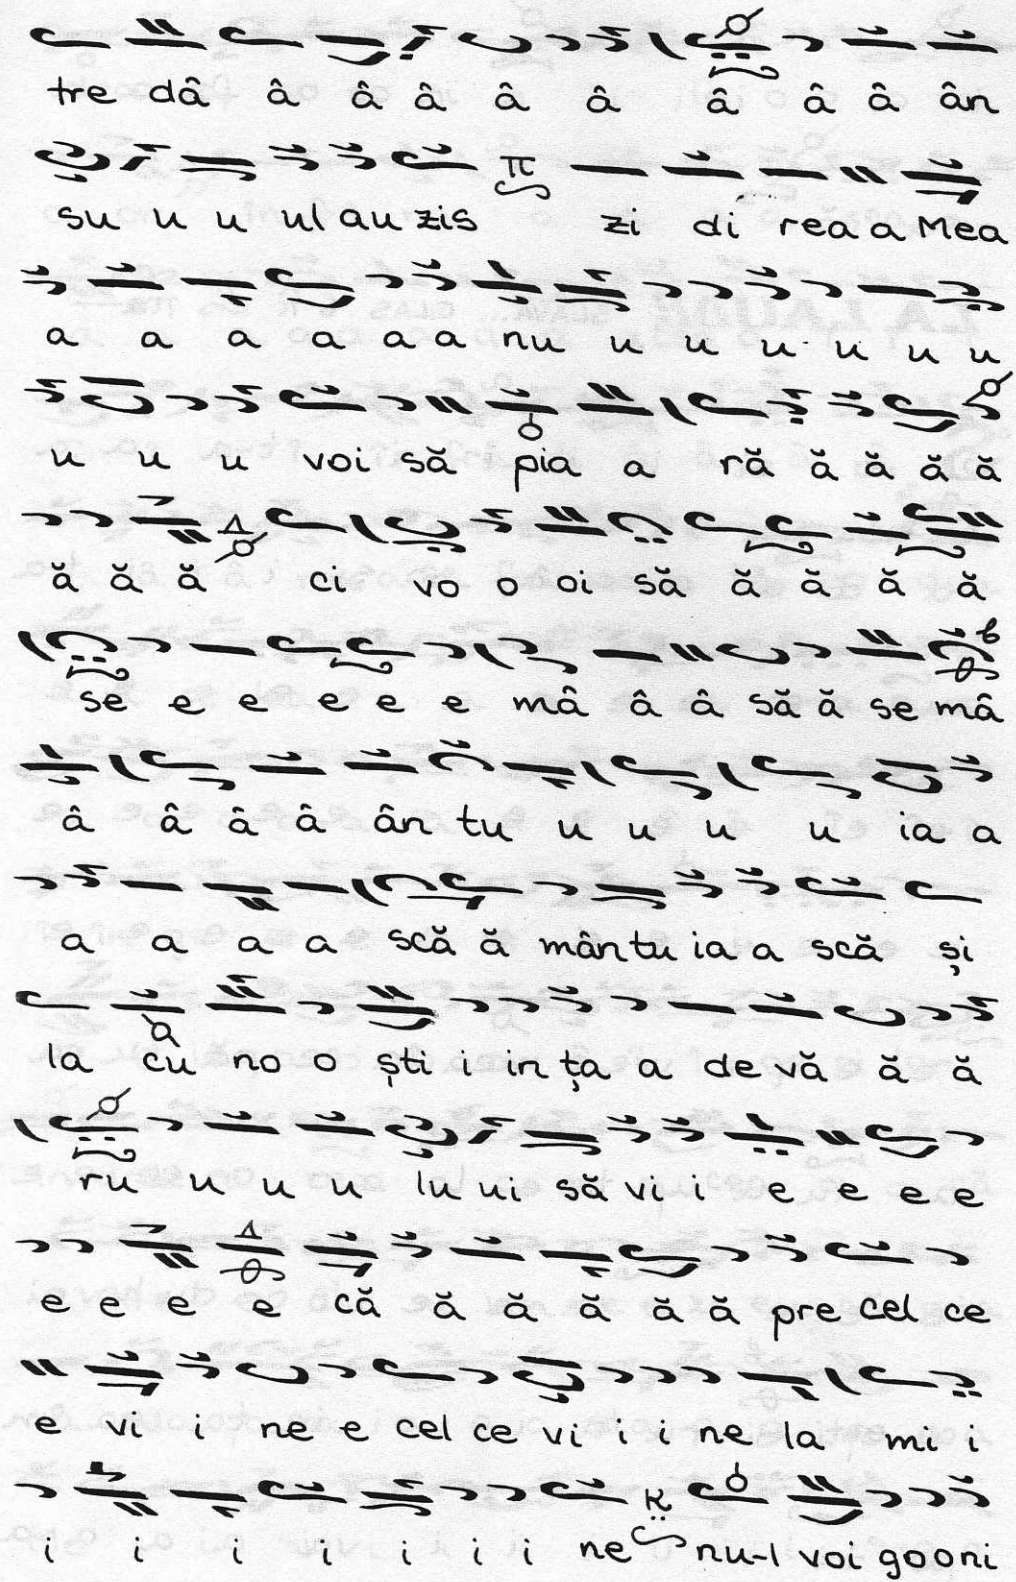 tre dâ â â â â â â â â ân
su u u ul au zis zi di rea a Mea
a a a a a a nu u u u u u u
u u u voi să pia a ră ă ă ă ă
ă ă ă ci vo o oi să ă ă ă ă
se e e e e e mâ â â să ă se mâ
â â â â ân tu u u u u ia a
a a a a scă ă mântu ia a scă și
la cu no o ști i in ța a de vă ă ă
ru u u u lu ui să vi i e e e e
e e e e că ă ă ă ă ă pre cel ce
e vi i ne e cel ce vi i i ne la mi i
i i i i i i i ne nu-l voi go o ni